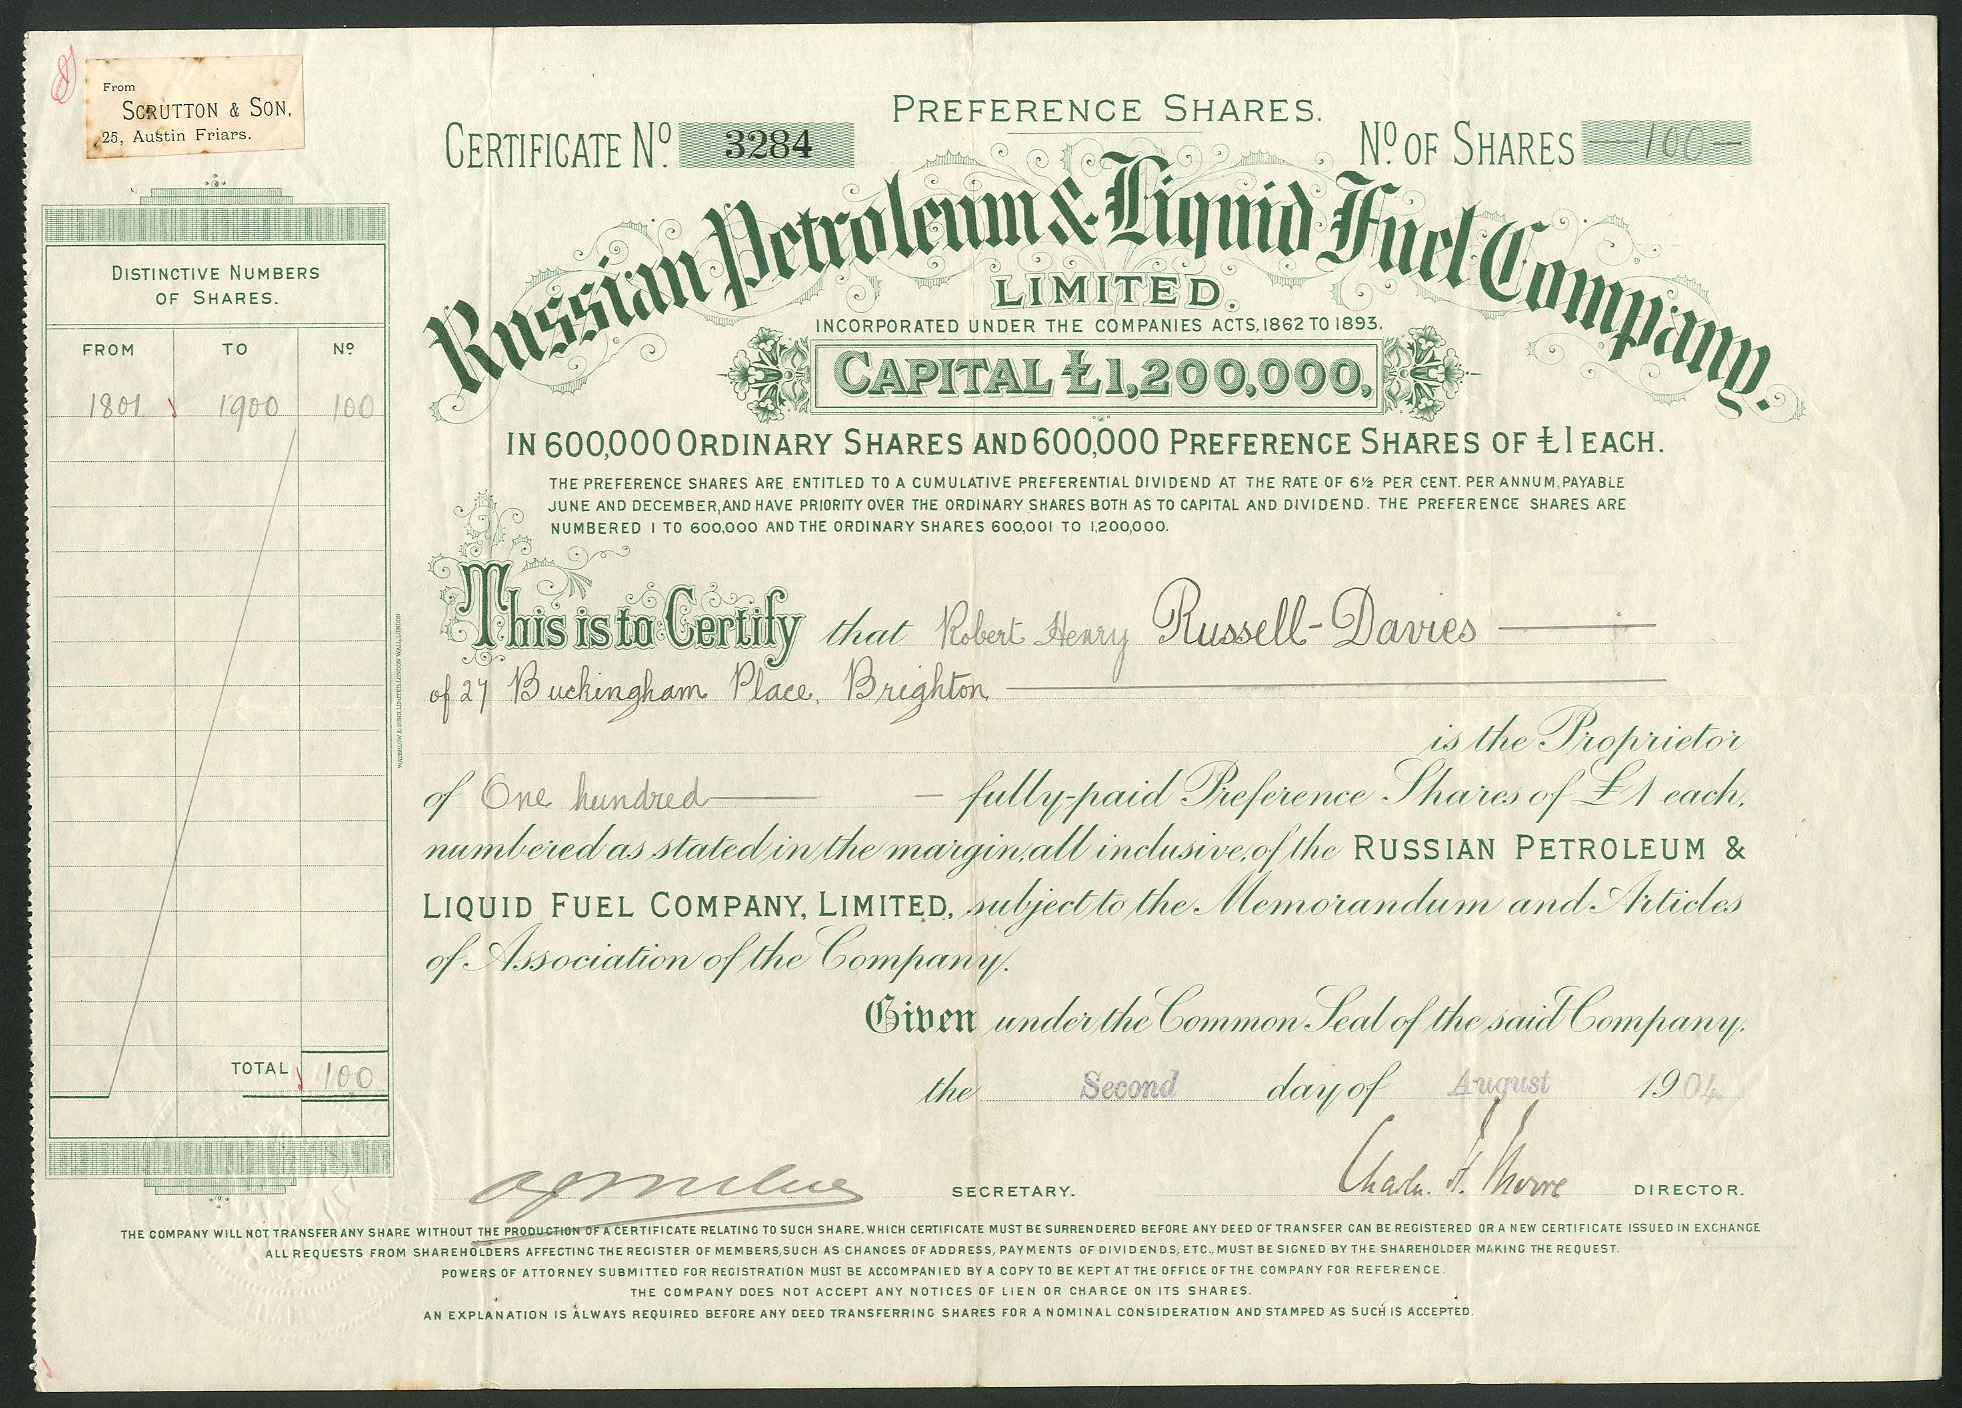 From
SCRUTTON & SON,
25, Austin Friars.
PREFERENCE SHARES.
CERTIFICATE No. 3284
No. OF SHARES 100
Russian Petroleum & Liquid Fuel Company.
LIMITED.
INCORPORATED UNDER THE COMPANIES ACTS, 1862 TO 1893.
CAPITAL £1,200,000,
IN 600,000 ORDINARY SHARES AND 600,000 PREFERENCE SHARES OF £1 EACH.
THE PREFERENCE SHARES ARE ENTITLED TO A CUMULATIVE PREFERENTIAL DIVIDEND AT THE RATE OF 6½ PER CENT. PER ANNUM, PAYABLE
JUNE AND DECEMBER, AND HAVE PRIORITY OVER THE ORDINARY SHARES BOTH AS TO CAPITAL AND DIVIDEND. THE PREFERENCE SHARES ARE
NUMBERED 1 TO 600,000 AND THE ORDINARY SHARES 600,001 TO 1,200,000.
DISTINCTIVE NUMBERS
OF SHARES.
FROM TO No
1801 1900 100
TOTAL 100
WATERLOW & SONS, LIMITED, LONDON WALL, LONDON
This is to Certify that Robert Henry Russell-Davies
of 27 Buckingham Place, Brighton
is the Proprietor
of One hundred fully-paid Preference Shares of £1 each,
numbered as stated in the margin, all inclusive, of the RUSSIAN PETROLEUM &
LIQUID FUEL COMPANY, LIMITED, subject to the Memorandum and Articles
of Association of the Company.
Given under the Common Seal of the said Company,
the Second day of August 1904.
SECRETARY.
Charles F. Moore DIRECTOR.
THE COMPANY WILL NOT TRANSFER ANY SHARE WITHOUT THE PRODUCTION OF A CERTIFICATE RELATING TO SUCH SHARE, WHICH CERTIFICATE MUST BE SURRENDERED BEFORE ANY DEED OF TRANSFER CAN BE REGISTERED OR A NEW CERTIFICATE ISSUED IN EXCHANGE
ALL REQUESTS FROM SHAREHOLDERS AFFECTING THE REGISTER OF MEMBERS, SUCH AS CHANGES OF ADDRESS, PAYMENTS OF DIVIDENDS, ETC., MUST BE SIGNED BY THE SHAREHOLDER MAKING THE REQUEST.
POWERS OF ATTORNEY SUBMITTED FOR REGISTRATION MUST BE ACCOMPANIED BY A COPY TO BE KEPT AT THE OFFICE OF THE COMPANY FOR REFERENCE.
THE COMPANY DOES NOT ACCEPT ANY NOTICES OF LIEN OR CHARGE ON ITS SHARES.
AN EXPLANATION IS ALWAYS REQUIRED BEFORE ANY DEED TRANSFERRING SHARES FOR A NOMINAL CONSIDERATION AND STAMPED AS SUCH IS ACCEPTED.